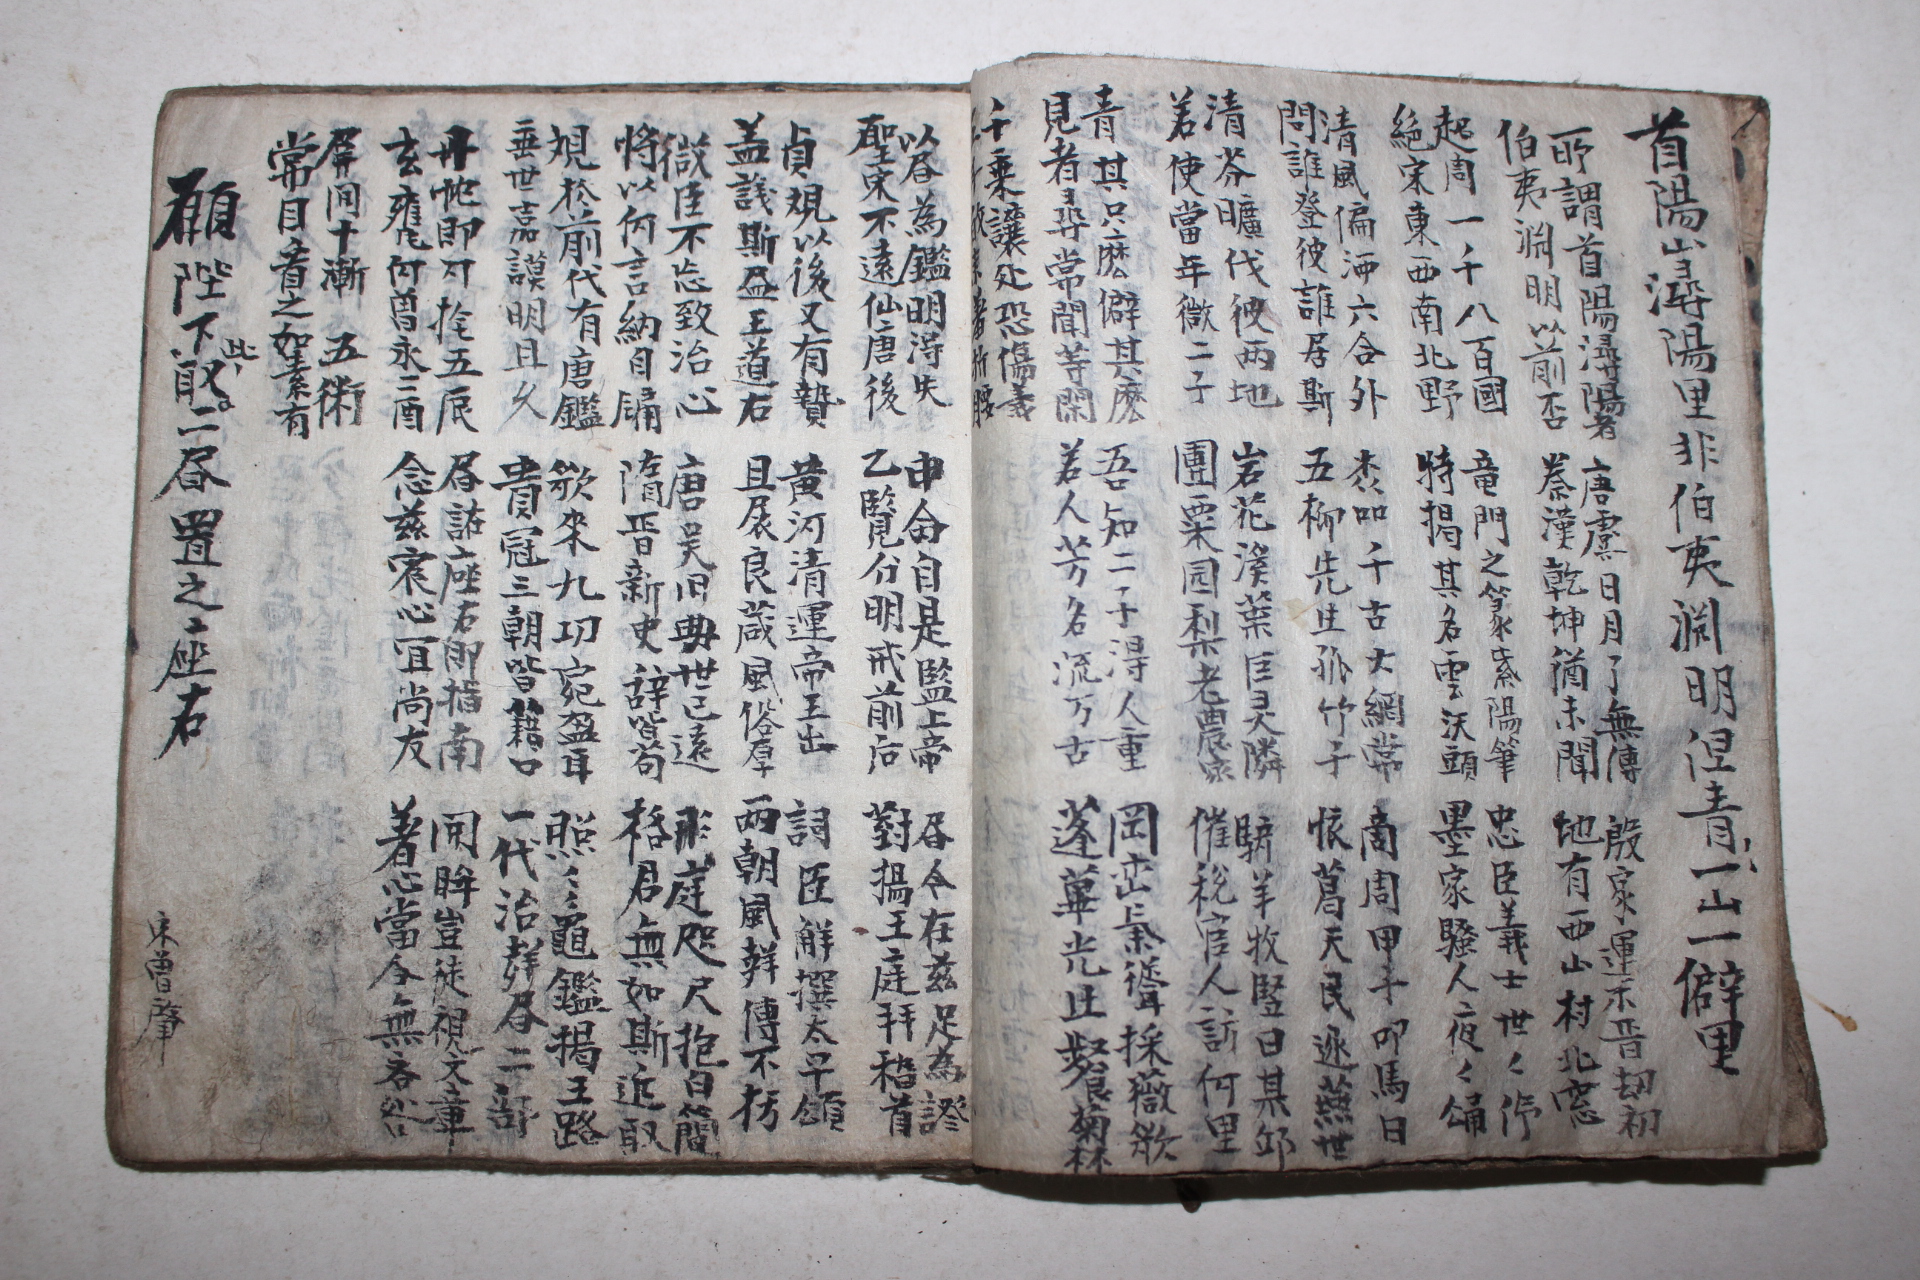 首陽山潯陽里非伯夷淵明涅青一山一僻里
所謂首陽潯陽者 唐虞日月了無傳 殷家運末晋劫初
伯夷淵明以前否 秦漢乾坤猶未聞 地有西山村北窓
起周一千八百國 竜門之篆紫陽筆 忠臣義士世〻
絶宋東西南北野 特揭其名雲沃頭 墨家騷人夜〻誦
清風偏洒六合外 千古大綱常 商周甲子叩馬日
問誰登彼誰居斯 五柳先生孤竹子 恨葛天民逃燕世
清芬曠代彼兩地 岩花溪葉臣灵隣 騂羊牧竪日某邱
若使當年微二子 團栗园梨老農家 催稅官人訪何里
青其只麽僻其麽 吾知二子得人重 岡峦聳採薇欲
見者尋常聞等閑 若人芳名流万古 蓬蓽光生餐菊林
千乘讓処恐傷義
以君為鑑明得失 申命自是監上帝 君今在茲足為證
聖宋不遠仙唐後 乙覽分明戒前后 對揚王庭拜稽首
貞規以後又有贊 黄河清運帝王出 詞臣解撰太平頌
盖識斯益王道右 且展良箴風俗厚 兩朝風傳不朽
微臣不忘致治心 唐吴旧典世已遠 彤庭咫尺抱白簡
將以何言納自牖 隋晋新史辞皆苟 格君無如斯近取
規於前代有唐鑑 欲來九功宛盈耳 照〻黽鑑揭王路
垂世嘉謨明且久 貴冠三朝皆藉口 一代治君二部
丹帷即可捨五辰 居諸座右即指南 開眸豈徒視文章
玄雍何曾永二酉 念茲宸心宜尚友 著心當令無吝咎
屏間十漸五術
常目省之如素有
願陛下取此二君置之座右
宋曾肇